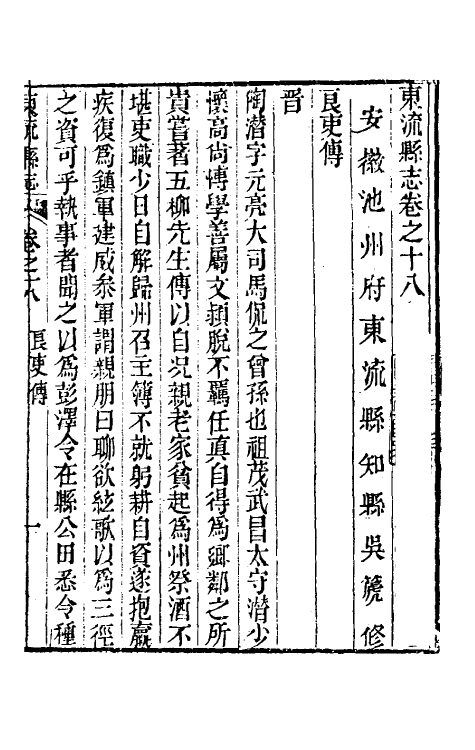 東流縣志卷之十八
安徽池州府東流縣知縣吳箎修
良吏傳
晉
陶潛字元亮大司馬侃之曾孫也祖茂武昌太守潛少
懷高尚博學善屬文穎脫不羈任真自得為鄉鄰之所
貴嘗著五柳先生傳以自况親老家貧起為州祭酒不
堪吏職少日自解歸州召主簿不就躬耕自資遂抱羸
疾復為鎮軍建威叅軍謂親朋曰聊欲絃歌以為三徑
之資可乎執事者聞之以為彭澤令在縣公田悉令種
東流縣志 卷之十八 良吏傳 一